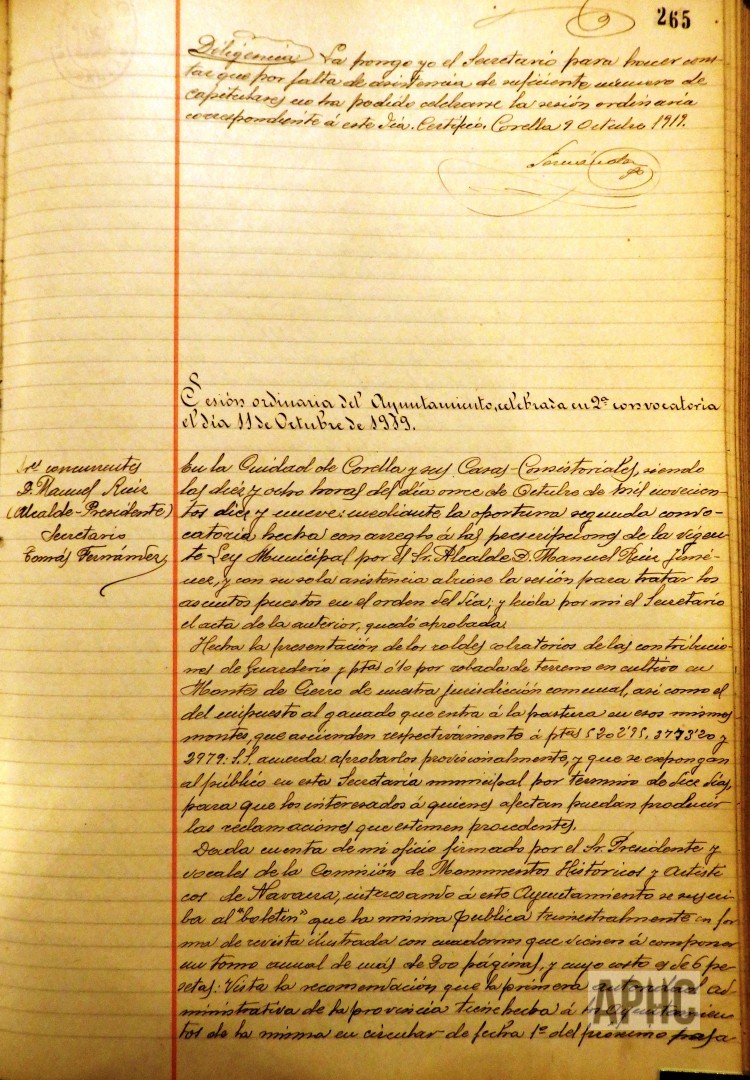 265
Diligencia La pongo yo el Secretario para hacer cons-
tar que por falta de asistencia de suficiente numero de
capitulares no ha podido celebrarse la sesión ordinaria
correspondiente á este día. Certifico. Corella 9 Octubre 1919.
Fernández
Sesión ordinaria del Ayuntamiento, celebrada en 2ª convocatoria
el día 11 de Octubre de 1919.
Sres concurrentes
D. Manuel Ruiz
(Alcalde-Presidente)
Secretario
Tomás Fernández
En la Ciudad de Corella y sus Casas-Consistoriales, siendo
las diez y ocho horas del día once de Octubre de mil novecien-
tos diez y nueve: mediante la oportuna segunda convo-
catoria hecha con arreglo á las prescripciones de la vigen-
te Ley Municipal por el Sr. Alcalde D. Manuel Ruiz Jimé-
nez, y con su sola asistencia abriose la sesión para tratar los
asuntos puestos en el orden del día; y leida por mi el Secretario
el acta de la anterior, quedó aprobada.
Hecha la presentación de los roldes cobratorios de las contribucio-
nes de Guarderio y ptas 0'10 por robada de terreno en cultivo en
Montes de Cierzo de nuestra jurisdicción comunal, asi como el
del impuesto al ganado que entra á la pastura en esos mismos
montes, que ascienden respectivamente á ptas 5202'95, 3773'20 y
2979: S.S. acuerda aprobarlos provisionalmente, y que se expongan
al público en esta Secretaría municipal por termino de diez días,
para que los interesados á quienes afectan puedan producir
las reclamaciones que estimen procedentes.
Dada cuenta de un oficio firmado por el Sr. Presidente y
vocales de la Comisión de Monumentos Históricos y Artísti-
cos de Navarra, interesando á este Ayuntamiento se suscri-
ba al "boletín" que la misma publica trimestralmente en for-
ma de revista ilustrada con cuadernos que vienen á componer
un tomo anual de más de 300 páginas, y cuyo costo es de 6 pe-
setas: Vista la recomendación que la primera autoridad ad-
ministrativa de la provincia tiene hecha á los Ayuntamien-
tos de la misma en circular de fecha 1º del proximo pasa-
APHC